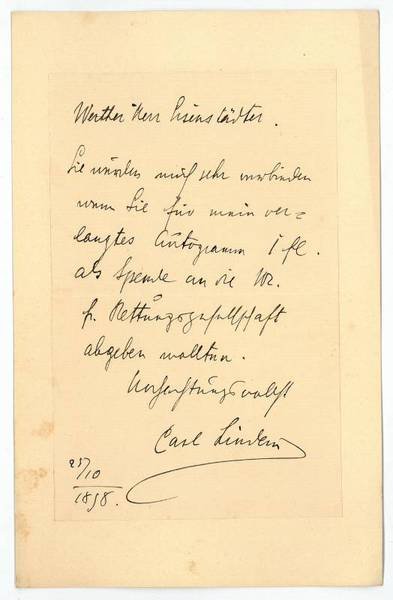 Werther Herr Eisenstädter.
Sie würden mich sehr verbinden
wenn Sie für mein ver=
langtes Autogramm 1 fl.
als Spende an die W.
fr. Rettungsgesellschaft
abgeben wollten.
Hochachtungsvollst
Carl Lindau
25/10
1898.